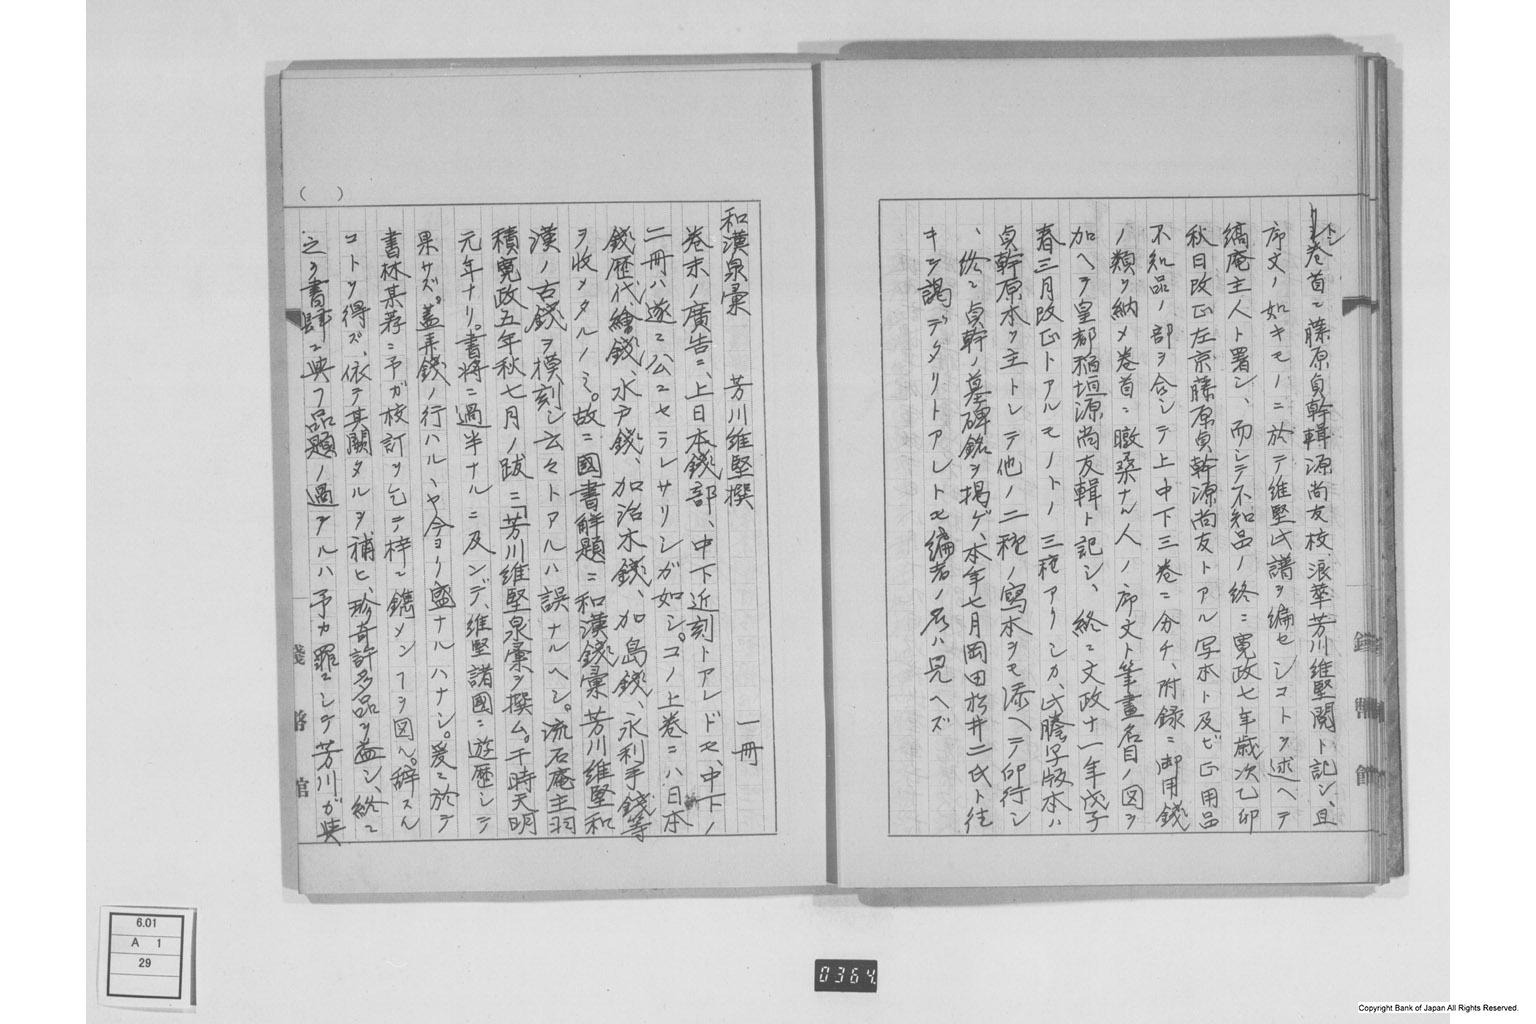 トシ
巻首ニ藤原貞幹輯源尚友校、浪華芳川維堅閲ト記シ、且
序文ノ如キモノニ於テ維堅氏譜ヲ編セシコトヲ述ヘテ
縞庵主人ト署シ、而シテ不知品ノ終ニ寛政七年歳次乙卯
秋日改正左京藤原貞幹源尚友トアル写本ト及ビ正用品
不知品ノ部ヲ合シテ上中下三巻ニ分チ、附録ニ御用錢
ノ類ヲ納メ巻首ニ暾桑ナル人ノ序文ト筆畫名目ノ図ヲ
加ヘテ皇都稲垣源尚友輯ト記シ、終ニ文政十一年戊子
春三月改正トアルモノトノ三種アリシカ、此謄写版本ハ
貞幹原本ヲ主トシテ他ノ二種ノ寫本ヲモ添ヘテ印行シ
、終ニ貞幹ノ墓碑銘ヲ掲ゲ、本年七月岡田松井二氏ト往
キテ謁デタリトアレトモ編者ノ名ハ見ヘズ
錢幣館
( )
和漢泉彙 芳川維堅撰 一冊
巻末ノ廣告ニ、上日本錢部、中下近刻トアレドモ、中下ノ
二冊ハ遂ニ公ニセラレサリシガ如シ。コノ上巻ニハ日本
錢歴代、繪錢、水戸錢、加治木錢、加島錢、永利手錢等
ヲ收メタルノミ。故ニ國書解題ニ和漢錢彙芳川維堅和
漢ノ古錢ヲ模刻シ云々トアルハ誤ナルヘシ。流石庵主羽
積寛政五年秋七月ノ跋ニ「芳川維堅泉彙ヲ撰ム。干時天明
元年ナリ。書将ニ過半ナルニ及ンデ、維堅諸國ニ遊歴シテ
果サズ。蓋弄錢ノ行ハルヽヤ今ヨリ盛ナルハナシ。爰ニ於テ
書林某荐ニ予ガ校訂ヲ乞ニ梓ニ鐫メンフヲ図ル。辞スル
コトヲ得ズ、依テ其闕タルヲ補ヒ、珍奇許多品ヲ益シ、終ニ
之ヲ書肆ニ與フ品題ノ過ヲルハ予カ罪ニシテ芳川ガ與
錢幣館
6.01
A 1
29
0364
Copyright Bank of Japan All Rights Reserved.